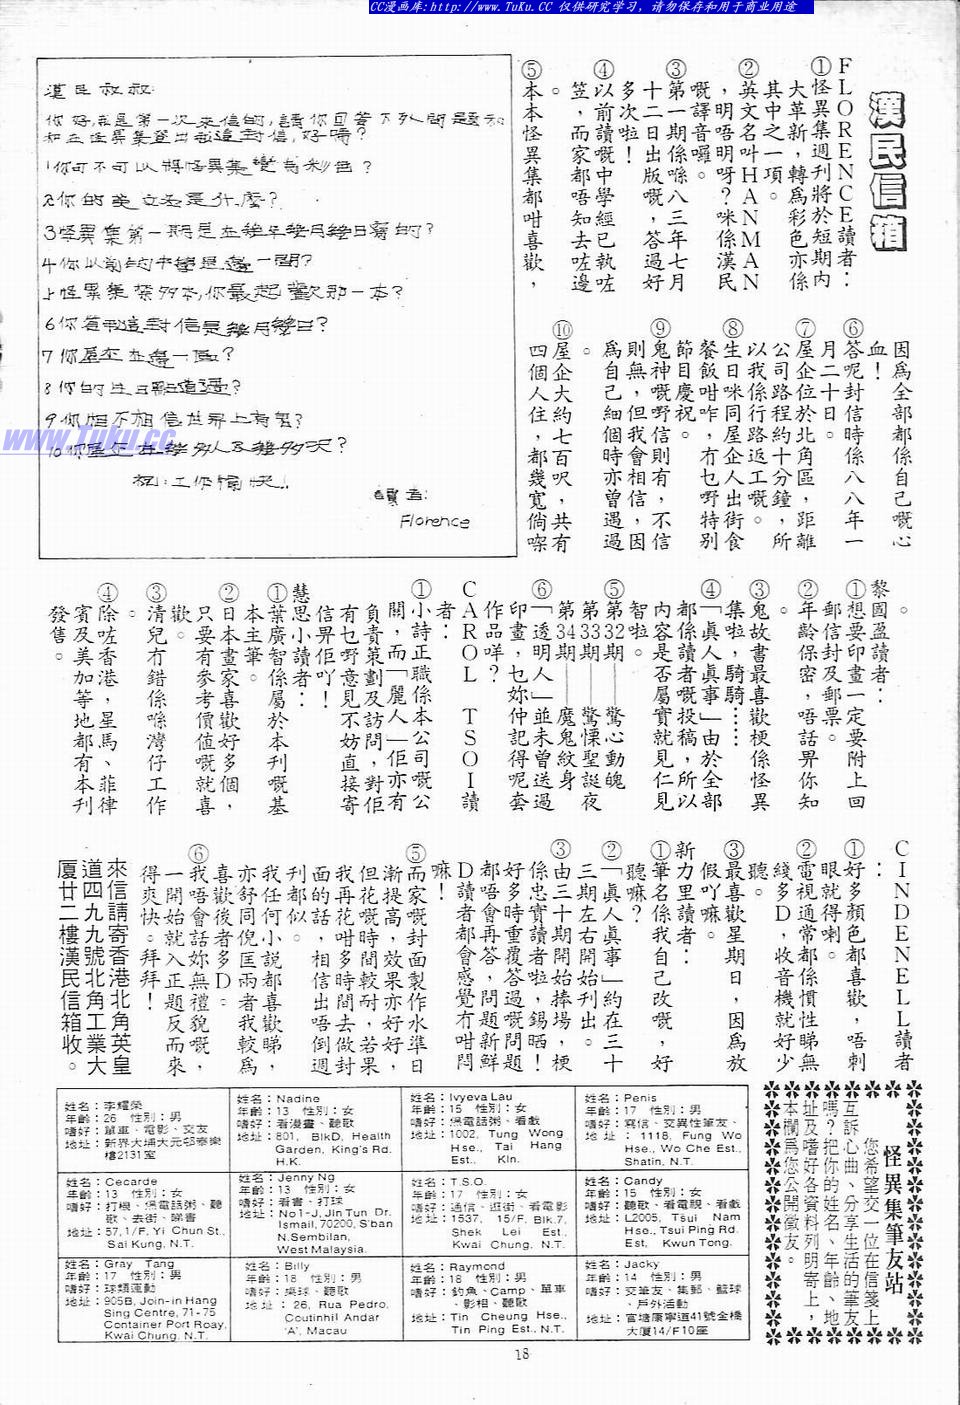 CC漫画库:http://www.TuKu.CC 仅供研究学习，请勿保存和用于商业用途
漢民信箱
FLORENCE讀者：
①怪異集週刊將於短期內
大革新，轉爲彩色亦係
其中之一項。
②英文名叫HANMAN
，明唔明呀？咪係漢民
嘅譯音囉。
③第一期係喺八三年七月
十二日出版嘅，答過好
多次啦！
④以前讀嘅中學經已執咗
笠，而家都唔知去咗邊
。
⑤本本怪異集都咁喜歡，
因爲全部都係自己嘅心
血！
⑥答呢封信時係八八年一
月二十日。
⑦屋企位於北角區，距離
公司路程約十分鐘，所
以我係行路返工嘅。
⑧生日咪同屋企人出街食
餐飯咁咋，冇乜嘢特別
節目慶祝。
⑨鬼神嘅嘢信則有，不信
則無，但我會相信，因
爲自己細個時亦曾遇過
。
⑩屋企大約七百呎，共有
四個人住，都幾寬倘㗎
。
漢民叔叔：
你好,我是第一次來信的,請你回答下列問題和
和在怪異集登出我這封信,好嗎?
1你可不可以將怪異集變為彩色?
2.你的英文名是什麼?
3怪異集第一期是在幾年幾月幾日寫的?
4你以前的中學是邊一間?
5怪異集咁多本,你最起歡那一本?
6你看到這封信是幾月幾日?
7你屋企在邊一區?
8你的生日點道過?
9你相不相信世界上有鬼?
10你屋企在幾多人及幾多呎?
祝:工作愉快!
讀者:
Florence
www.Tuku.cc
黎國盈讀者：
①想要印畫一定要附上回
郵信封及郵票。
②年齡保密，唔話畀你知
。
③鬼故書最喜歡梗係怪異
集啦，騎騎……
④「眞人眞事」由於全部
都係讀者嘅投稿，所以
內容是否屬實就見仁見
智啦。
⑤第32期——驚心動魄
第33期——驚慄聖誕夜
第34期——魔鬼紋身
⑥「透明人」並未曾送過
印畫，乜妳仲記得呢套
作品咩？
CAROL TSOI讀
者：
①小詩正職係本公司嘅公
關，而「麗人」佢亦有
負責策劃及訪問，對佢
有乜嘢意見不妨直接寄
信畀佢吖！
慧思小讀者：
①葉廣智係屬於本刊嘅基
本主筆。
②日本畫家喜歡好多個，
只要有參考價値嘅就喜
歡。
③清兒冇錯係喺灣仔工作
。
④除咗香港，星馬、菲律
賓及美加等地都有本刊
發售。
CINDENELL讀者
：
①好多顏色都喜歡，唔刺
眼就得喇。
②電視通常都係慣性睇無
綫多D，收音機就好少
聽。
③最喜歡星期日，因爲放
假吖嘛。
新力里讀者：
①筆名係我自己改嘅，好
聽嘛？
②「眞人眞事」約在三十
三期左右開始刊出。
③由三十期開始捧場，梗
係忠實讀者啦，錫晒！
好多時重覆答過嘅問題
都唔會再答，問題新鮮
D讀者都會感覺冇咁悶
嘛！
⑤而家嘅封面製作水準日
漸提高，效果亦好好，
但花嘅時間較耐，若果
我再花咁多時間去做封
面的話，相信出唔倒週
刊都似。
我任何小說都喜歡睇，
亦舒同倪匡兩者我較爲
喜歡後者多D。
⑥我唔會話妳無禮貌嘅，
一開始就入正題反而來
得爽快。拜拜！
來信請寄香港北角英皇
道四九九號北角工業大
厦廿二樓漢民信箱收。
怪異集筆友站
您希望交一位在信箋上
互訴心曲、分享生活的筆友
嗎？把你的姓名、年齡、地
址及嗜好各資料列明寄上，
本欄爲您公開徵友。
姓名：李耀榮
年齡：26 性別：男
嗜好：單車、電影、交友
地址：新界大埔大元邨泰樂
樓2131室
姓名：Nadine
年齡：13 性別：女
嗜好：看漫畫、聽歌
地址：801, BlkD, Health
Garden, King's Rd.
H.K.
姓名：Ivyeva Lau
年齡：15 性別：女
嗜好：煲電話粥、看戲
地址：1002, Tung Wong
Hse., Tai Hang
Est., Kln.
姓名：Penis
年齡：17 性別：男
嗜好：寫信、交異性筆友、
地址：1118, Fung Wo
Hse., Wo Che Est.,
Shatin, N.T.
姓名：Cecarde
年齡：13 性別：女
嗜好：打機、煲電話粥、聽
歌、去街、睇書
地址：57,1/F, Yi Chun St.,
Sai Kung, N.T.
姓名：Jenny Ng
年齡：13 性別：女
嗜好：看書、打球
地址：No1-J, Jin Tun Dr.
Ismail, 70200, S'ban
N.Sembilan,
West Malaysia.
姓名：T.S.O.
年齡：17 性別：女
嗜好：通信、逛街、看電影
地址：1537, 15/F, Blk.7,
Shek Lei Est.,
Kwai Chung, N.T.
姓名：Candy
年齡：15 性別：女
嗜好：聽歌、看電視、看戲
地址：L2005, Tsui Nam
Hse., Tsui Ping Rd.
Est, Kwun Tong.
姓名：Gray Tang
年齡：17 性別：男
嗜好：球類運動
地址：905B, Join-in Hang
Sing Centre, 71-75
Container Port Roay,
Kwai Chung, N.T.
姓名：Billy
年齡：18 性別：男
嗜好：桌球、聽歌
地址：26, Rua Pedro,
Coutinhil Andar
'A', Macau
姓名：Raymond
年齡：18 性別：男
嗜好：釣魚、Camp、單車
、影相、聽歌
地址：Tin Cheung Hse.,
Tin Ping Est., N.T.
姓名：Jacky
年齡：14 性別：男
嗜好：交筆友、集郵、籃球
、戶外活動
地址：官塘康寧道41號金橋
大廈14/F10座
18